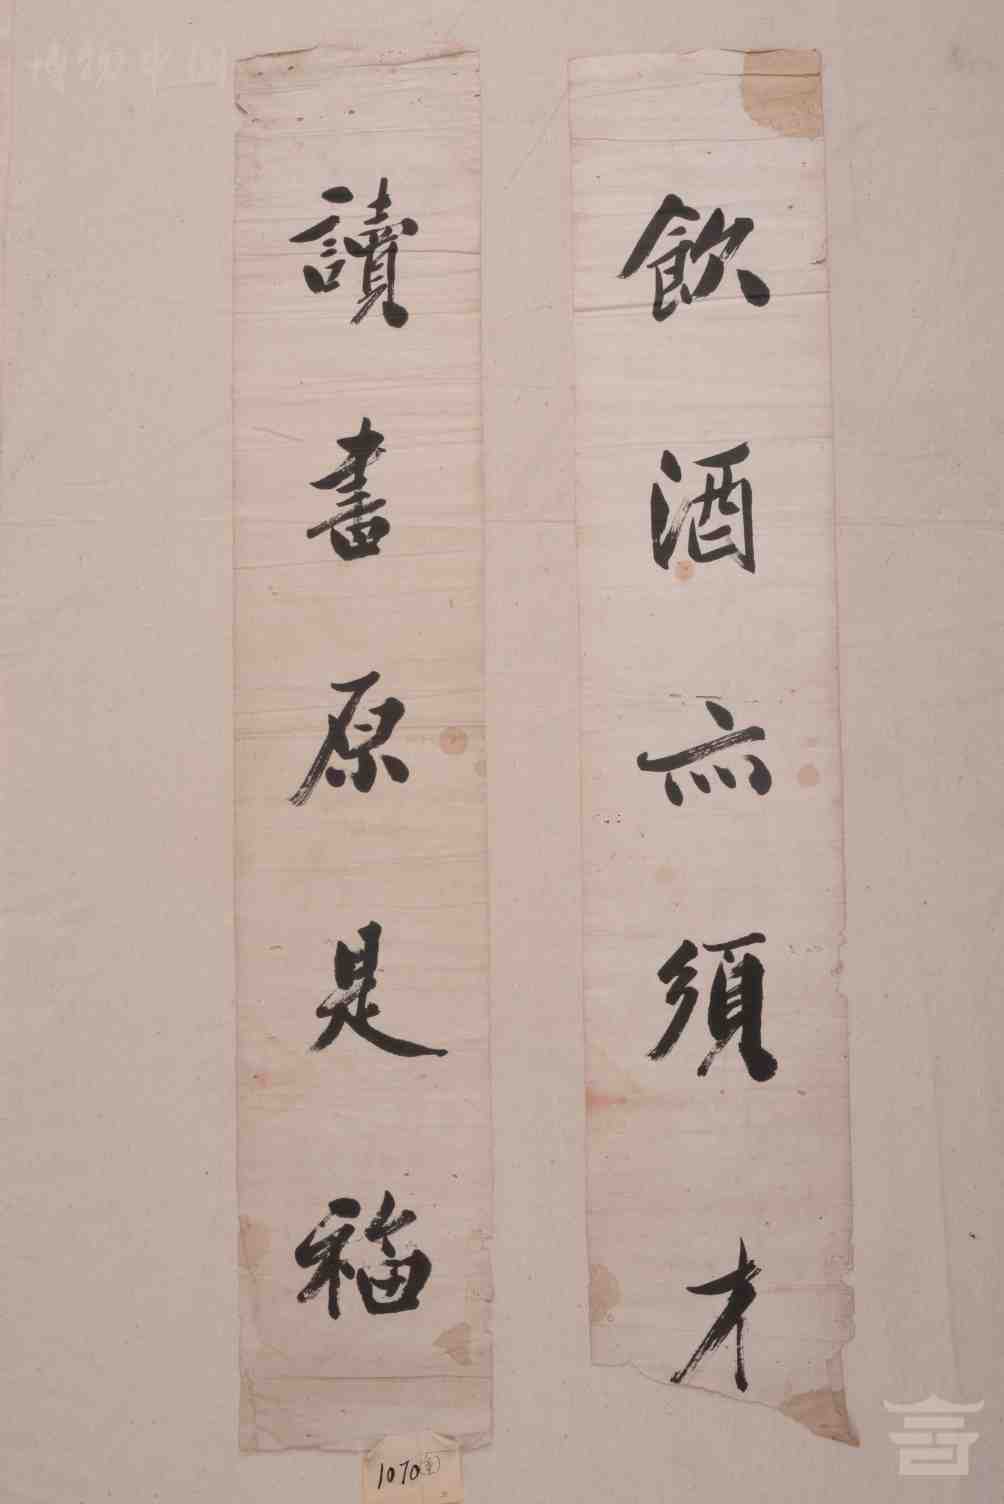 飲酒亦須才
讀書原是福
1070
博物中国